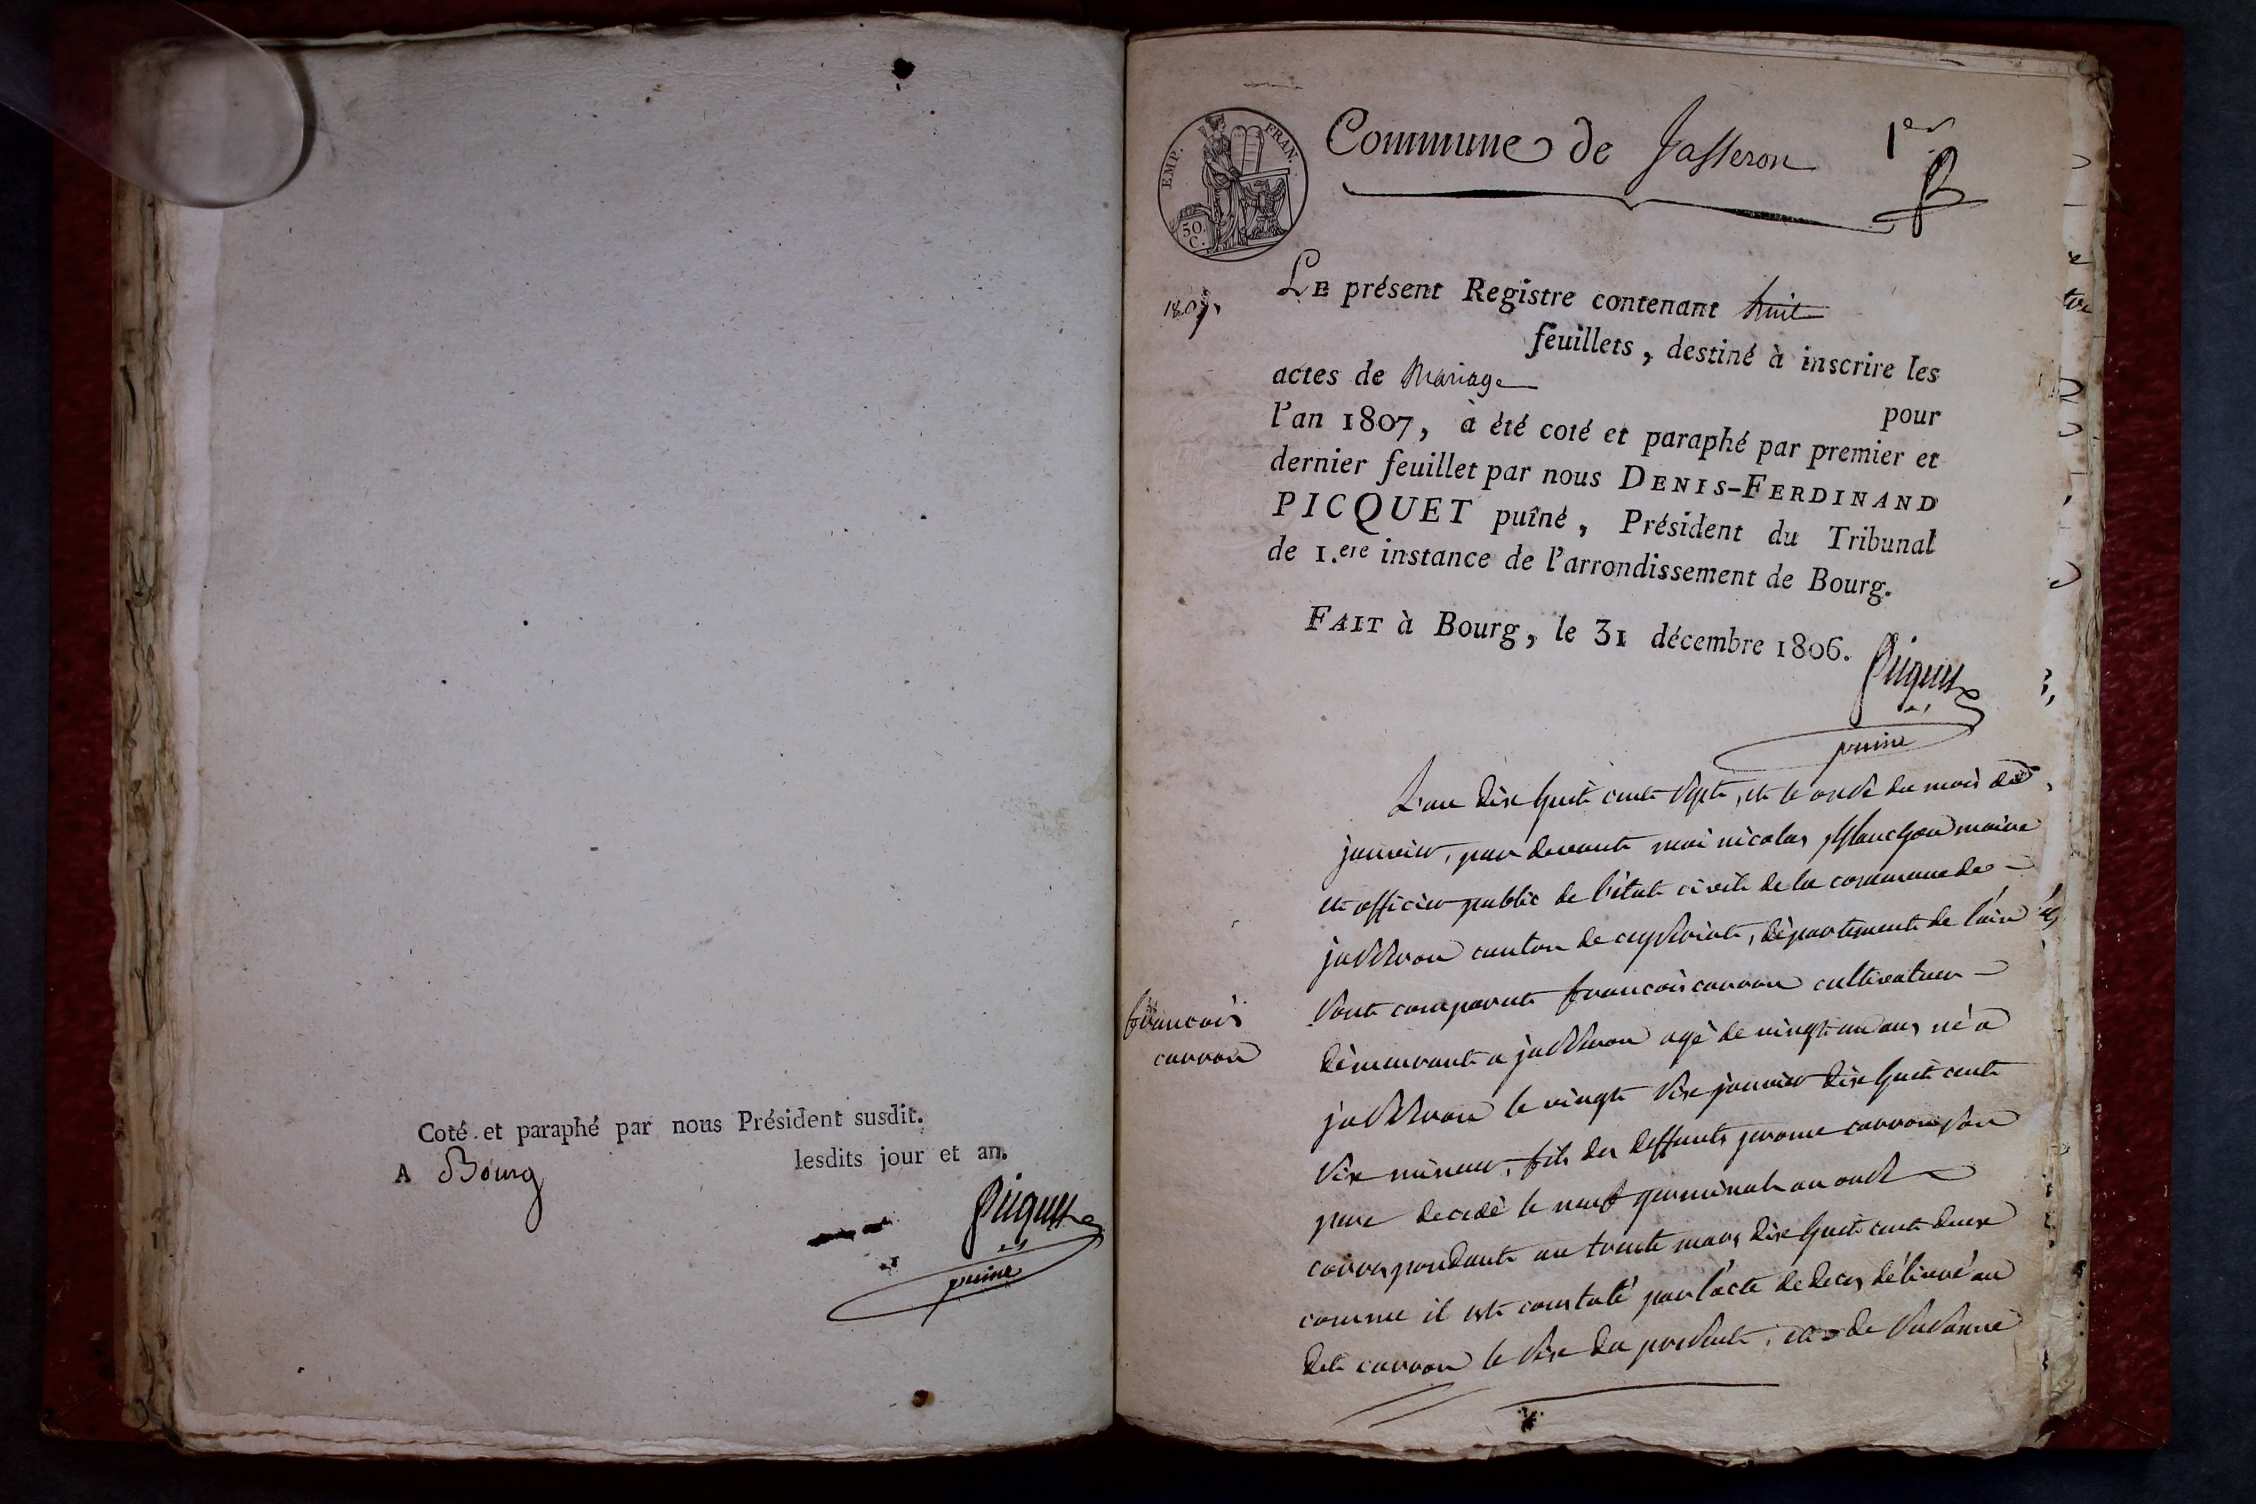 Coté et paraphé par nous Président susdit.
A Bourg lesdits jour et an.
Picquet
puîné
EMP. FRAN.
50.
C.
Commune de Jasseron 1er
1807.
LE présent Registre contenant huit
feuillets, destiné à inscrire les
actes de Mariage
pour
l'an 1807, à été coté et paraphé par premier et
dernier feuillet par nous DENIS-FERDINAND
PICQUET puîné, Président du Tribunal
de 1.ere instance de l'arrondissement de Bourg.
FAIT à Bourg, le 31 décembre 1806.
Picquet
puîné
L'an dix huit cent sept, et le onse du mois de
janvier, par devant moi nicolas planchon maire
et officier public de l'état civil de la commune de
jasseron canton de ceyseriat, département de l'ain
sont comparut francois carron cultivateur
démeurant a jasseron agé de vingt un ans né a
jasseron le vingt six janvier dix huit cent
six mineur, fils des deffunts jerome carron son
pere decedé le neuf germinal an onse
correspondant au trente mars dix huit cent deux
comme il est constaté par l'acte de deces délivré au
dit carron le six du present, et de susanne
francois
carron